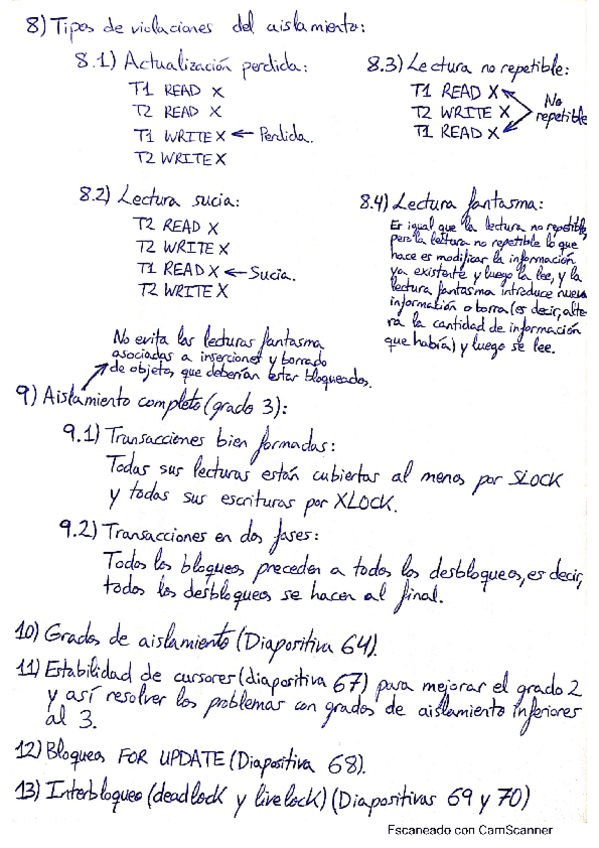 8) Tipos de violaciones del aislamiento:
8.1) Actualización perdida:
T1 READ X
T2 READ X
T1 WRITE X ← Perdida.
T2 WRITE X
8.2) Lectura sucia:
T2 READ X
T2 WRITE X
T1 READ X ← Sucia.
T2 WRITE X
8.3) Lectura no repetible:
T1 READ X
T2 WRITE X
T1 READ X
No
repetible
8.4) Lectura fantasma:
Es igual que la lectura no repetible,
pero la lectura no repetible lo que
hace es modificar la información
ya existente y luego la lee, y la
lectura fantasma introduce nueva
información o borra (es decir, alte
ra la cantidad de información
que había) y luego se lee.
No evita las lecturas fantasma
asociadas a inserciones y borrado
de objetos, que deberían estar bloqueados.
9) Aislamiento completo (grado 3):
9.1) Transacciones bien formadas:
Todas sus lecturas están cubiertas al menos por SLOCK
y todas sus escrituras por XLOCK.
9.2) Transacciones en dos fases:
Todos los bloqueos preceden a todos los desbloqueos, es decir,
todos los desbloqueos se hacen al final.
10) Grados de aislamiento (Diapositiva 64).
11) Estabilidad de cursores (diapositiva 67) para mejorar el grado 2
y así resolver los problemas con grados de aislamiento inferiores
al 3.
12) Bloqueos FOR UPDATE (Diapositiva 68).
13) Interbloqueo (deadlock y livelock) (Diapositivas 69 y 70)
Escaneado con CamScanner